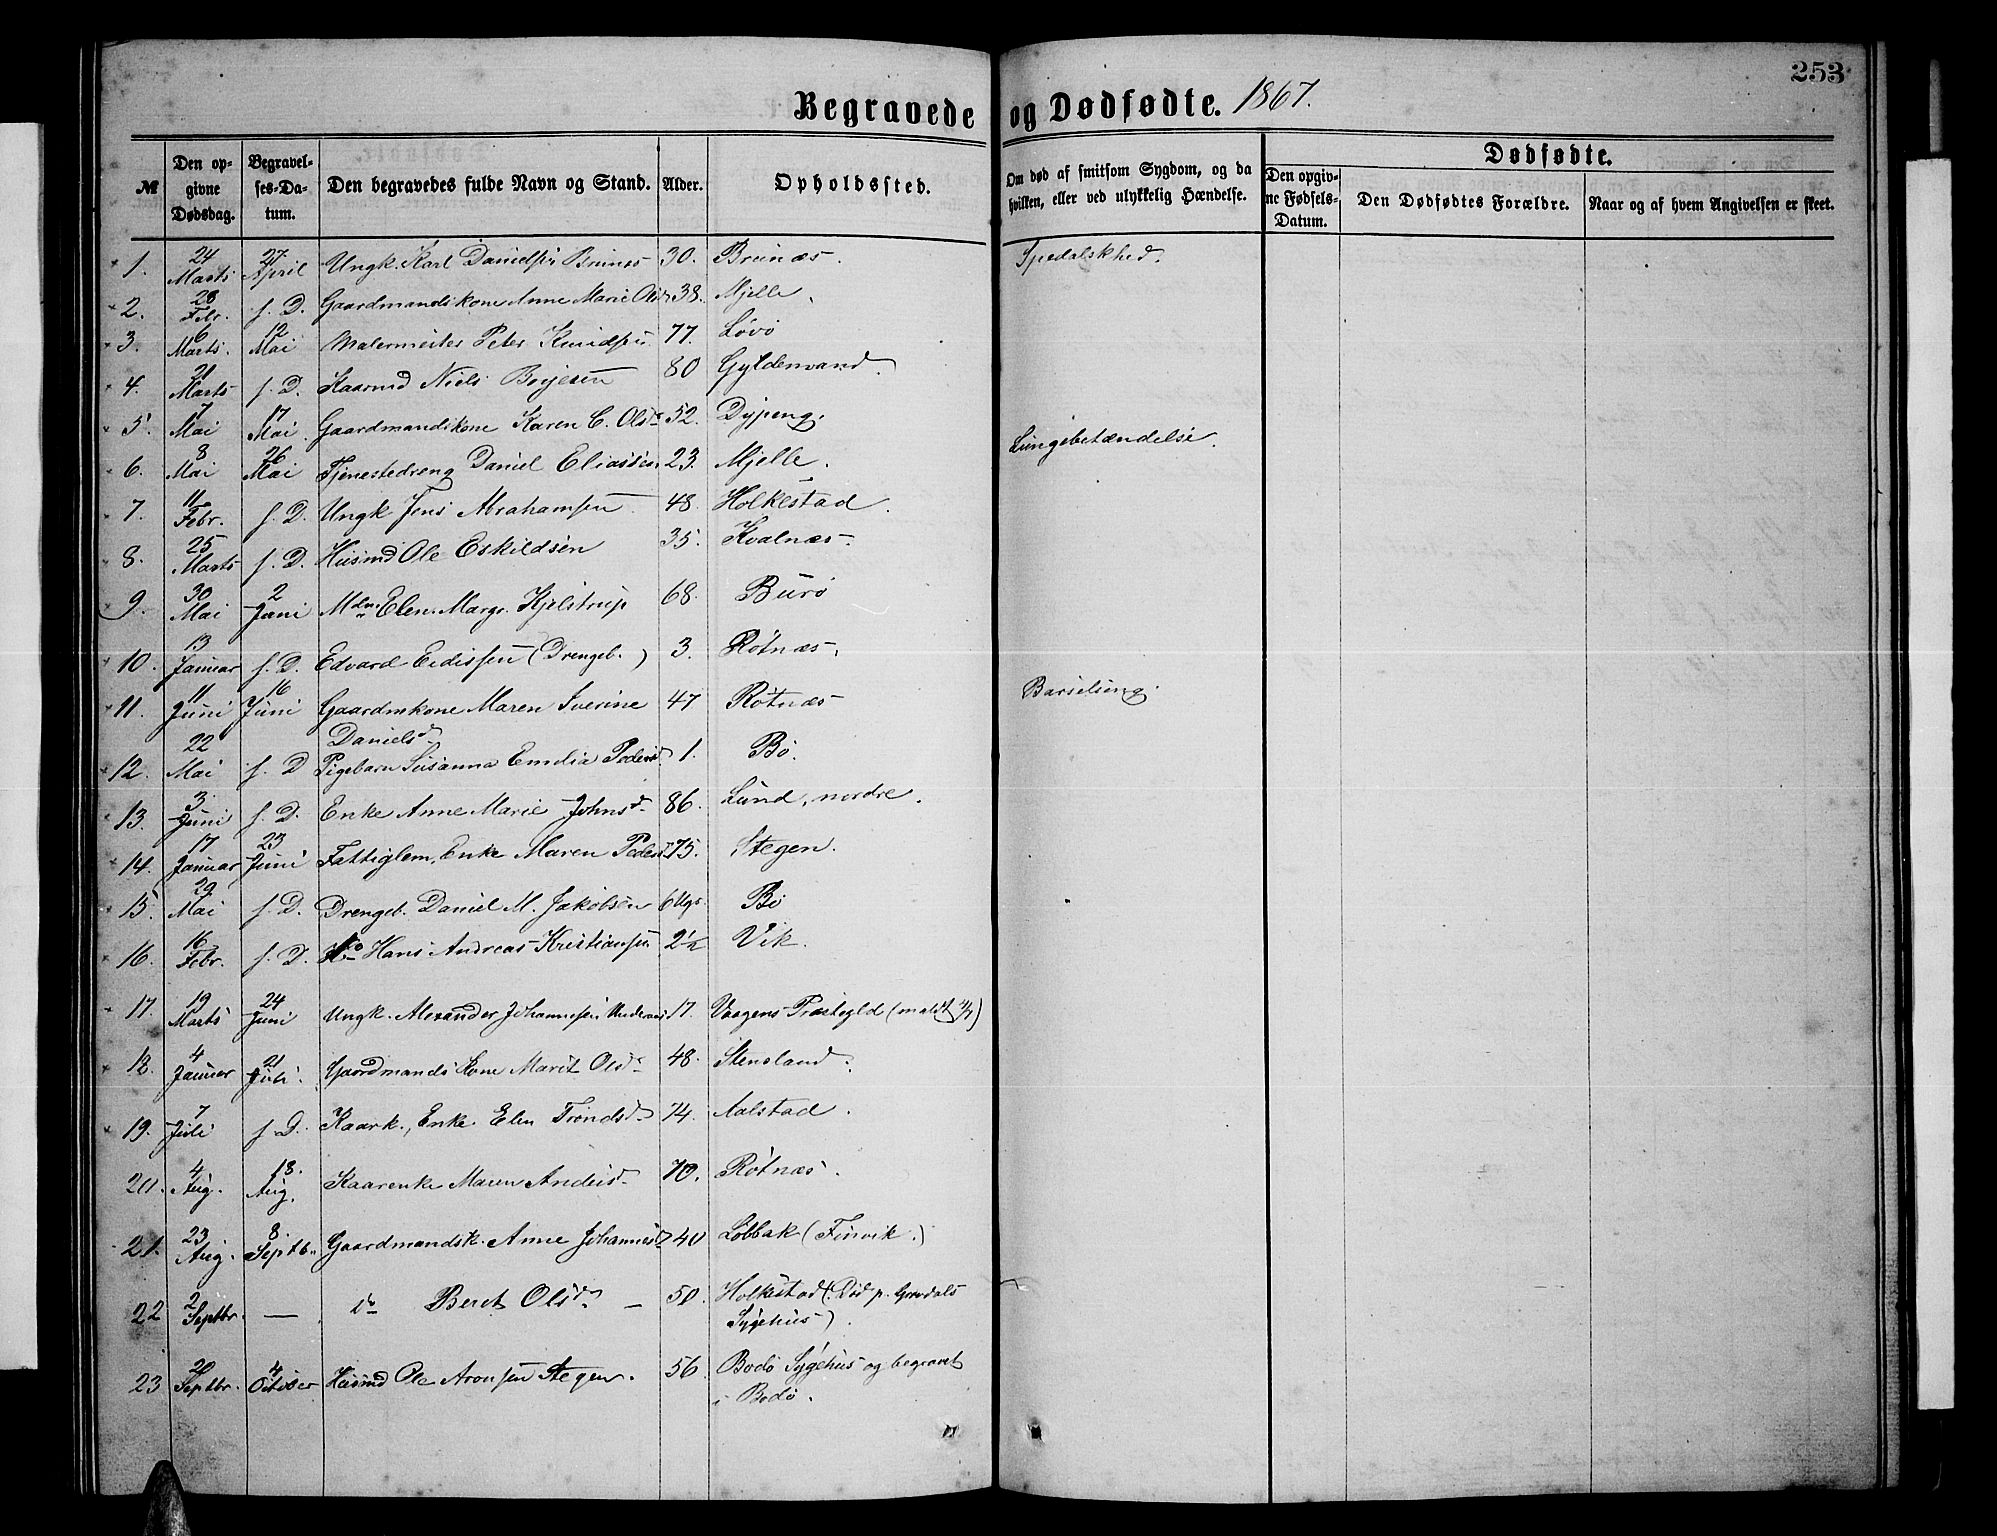 253
Begravede og Dødfødte. 1867.
№ Den opgivne Dødsdag. Begravelses-Datum. Den begravedes fulde Navn og Stand. Alder. Opholdssted. Om død af smitsom Sygdom, og da hvilken, eller ved ulykkelig Hændelse. Dødfødte. Den opgivne Fødsels-Datum. Den Dødfødtes Forældre. Naar og af hvem Angivelsen er skeet.
1. 24 Marts 27 April Ungk. Karl Danielsen Brunes 30. Brunæs. Spedalskhed.
2. 28 Febr. s. D. Gaardmandskone Anne Marie Olsd 38. Mjelle.
3. 6 Marts. 12 Mai Malermester Peter Knudsen 77. Løvø
4. 21 Marts s. D. Kaarmd Niels Børjesen 80 Gyldenvand.
5. 7 Mai 17 Mai. Gaardmandskone Karen C. Olsd 52. Dypeng.
6. 8 Mai 26 Mai Tjenestedreng Daniel Eliassen 23. Mjelle. Lungebetændelse.
7. 11 Febr. s. D. Ungk Jens Abrahamsen 48. Holkestad.
8. 25 Marts s. D. Husmd Ole Eskildsen 35. Kvalnæs.
9. 30 Mai 2 Juni Mdm Elen Margr. Kjelstrup 68. Burø
10. 13 Januar s. D. Edvard Eedissen (Drengeb.) 3. Røtnæs.
11. 11 Juni 16 Juni Gaardmkone Maren Sverine 47 Røtnæs Barselseng.
Danielsd
12. 22 Mai s. D Pigebarn Susanna Emilia Pedersd 1. Bø.
13. 3 Juni s. D. Enke Anne Marie Johnsd 86. Lund, nordre.
14. 17 Januar 23 Juni Fattiglem, Enke Maren Pedersd 75. Stegen.
15. 29 Mai s. D. Drengeb. Daniel M. Jakobsen 6 Ugr. Bø
16. 16 Febr. s. D. do Hans Andreas Kristiansen 2½ Vik.
17. 19 Marts 24 Juni Ungk. Alexander Johannesen 17. Vaagens Præstegld (meldt)
18. 4 Januar 21 Juli. Gaardmands Kone Marit Olsd 48. Stensland.
19. 7 Juli s. D. Kaark., Enke Elen Trondsd 74. Aalstad.
20. 4 Aug. 18. Aug. Kaarenke Maren Andersd 70. Røtnæs.
21. 23 Aug. 8. Septbr. Gaardmandsk. Anne Johannesd 40 Løbbak (Finvik.)
22 2 Septbr. — do Beret Olsd — 50. Holkestad (Død p. Grødals
Sygehus).
23 2 Septbr. 4 October Husmd Ole Aronsen Stegen. 56. Bodø Sygehus og begravet
i Bodø.